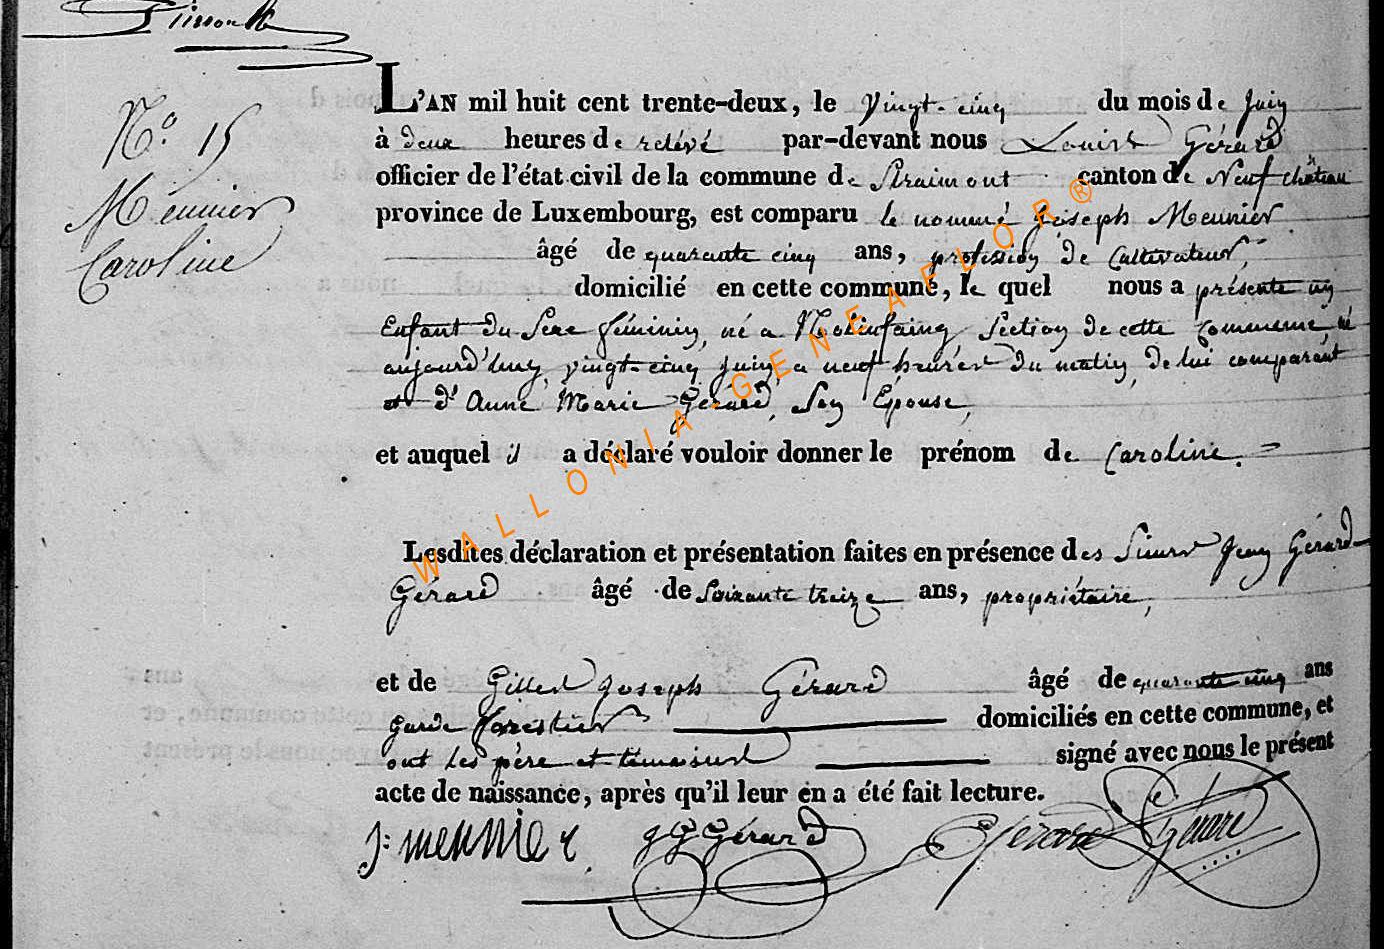 N.o 15
Meunier
Caroline
L'AN mil huit cent trente-deux, le vingt-cinq du mois de juin
à deux heures de relévé par-devant nous Louis Gérard
officier de l'état civil de la commune de Straimont canton de Neufchâteau
province de Luxembourg, est comparu le nommé Joseph Meunier
âgé de quarante cinq ans, profession de Cultivateur,
domicilié en cette commune, le quel nous a présenté un
Enfant du Sexe féminin, né a Molinfaing Section de cette Commune né
aujourd'huy vingt-cinq juin a neuf heures du matin, de lui comparant
et d'Anne Marie Gérard, Son Épouse,
et auquel il a déclaré vouloir donner le prénom de Caroline.
Lesdites déclaration et présentation faites en présence des Sieurs Jean Gérard
Gérard âgé de Soixante treize ans, propriétaire,
et de Gilles Joseph Gérard âgé de quarante cinq ans
garde forestier domiciliés en cette commune, et
ont les père et témoins signé avec nous le présent
acte de naissance, après qu'il leur en a été fait lecture.
J: meunier gJGérard Gérard L Gérard
WALLONIA-GENEAFLOR®